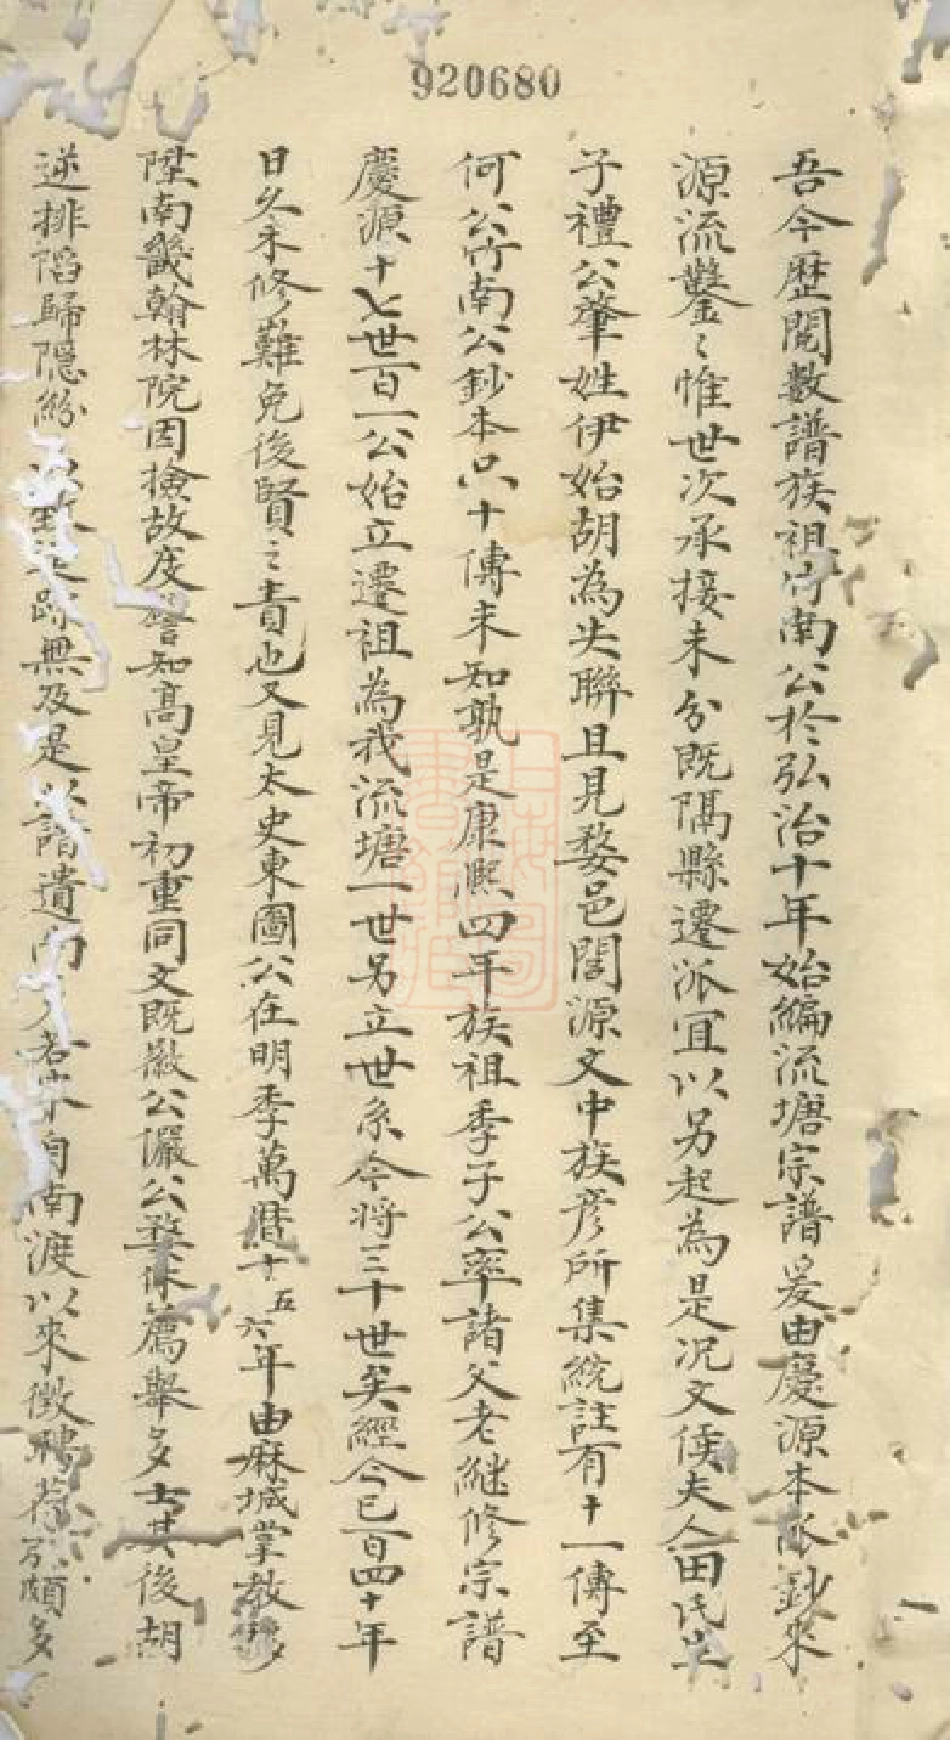 920680
吾今歷閱數譜族祖竹南公於弘治十年始編流塘宗譜爰由慶源本派鈔來
源流鑿〻惟世次承接未分既隔縣遷派宜以另起為是況文倿夫人田氏生
子禮公肇姓伊始胡為失聯且見婺邑閭源文中族彥所集統註有十一傳至
何公竹南公鈔本只十傳未知孰是康熙四年族祖季子公率諸父老継修宗譜
慶源十七世百一公始立遷祖為我流塘一世另立世系今將三十世矣經今已百四十年
日久未修難免後賢之責也又見太史東圖公在明季萬曆十五六年由麻城掌教
陞南畿翰林院因撿故度知高皇帝初重同文既徵公儼公舉多士其後胡
逆排陷歸隱無及是譜遺南自南渡以來徵聘荐引頗多
上海圖書館藏